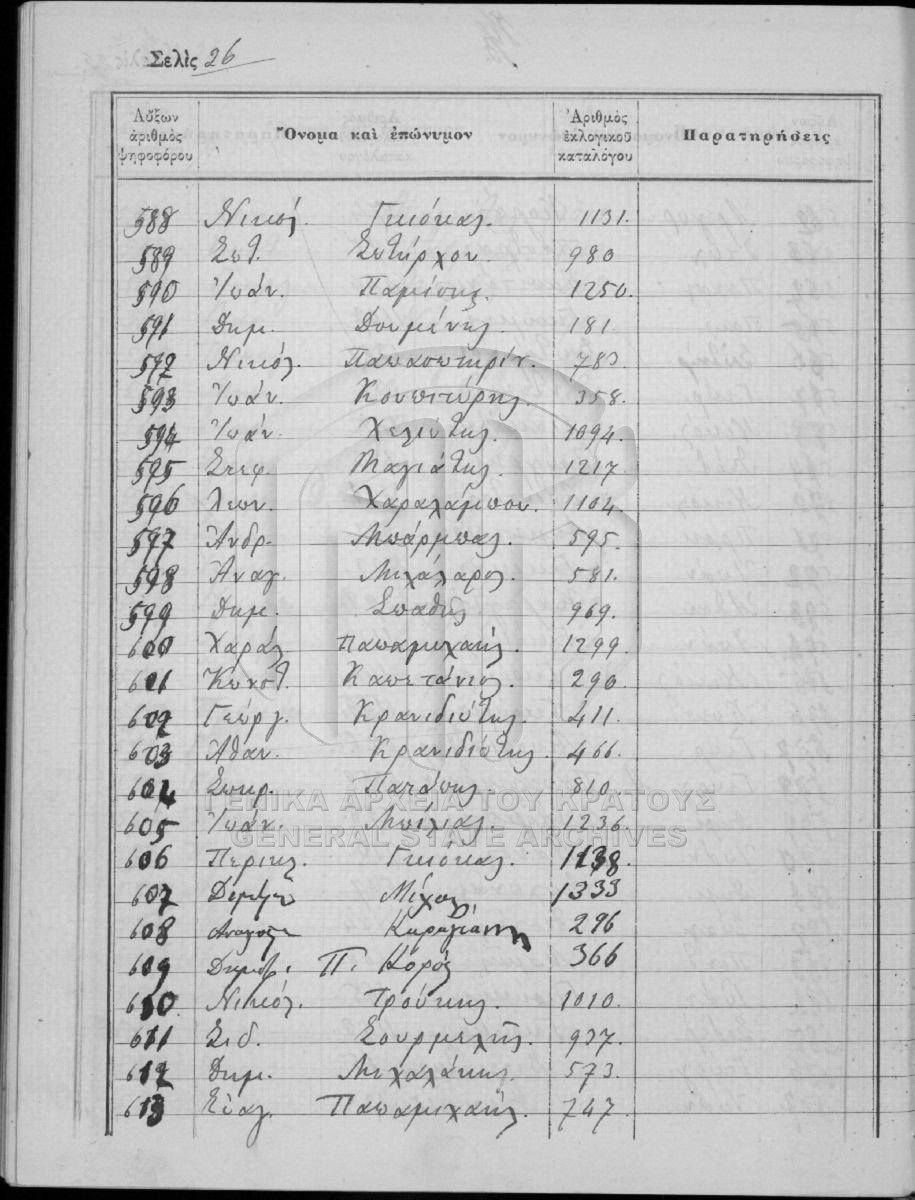 Σελὶς 26
Αὔξων ἀριθμὸς ψηφοφόρου Ὄνομα καὶ ἐπώνυμον Ἀριθμὸς ἐκλογικοῦ καταλόγου Παρατηρήσεις
588 Νικόλ. Γκιόκας. 1131.
589 Σωτ. Σωτήρχου. 980
590 Ἰωάν. Παμίσης. 1250.
591 Δημ. Δουμένης. 181.
592 Νικόλ. Παπασωτηρίου. 783
593 Ἰωάν. Κουπιτώρης. 358.
594 Ἰωάν. Χελιώτης. 1094.
595 Στεφ. Μαγιάτης. 1217.
596 Λεων. Χαραλάμπου. 1104.
597 Ἀνδρ. Μπάρμπας. 595.
598 Ἀναγ. Μιχάλαρος. 581.
599 Δημ. Σπαθης 969.
600 Χαράλ Παπαμιχαήλ. 1299.
601 Κωνστ. Καπετάνιος. 290.
602 Γεώργ. Κρανιδιώτης. 411.
603 Ἀθαν. Κρανιδιώτης. 466.
604 Σωκρ. Πατάπης. 810.
605 Ἰωάν. Μπίλιας. 1236
606 Περικλ. Γκιόκας. 1138
607 Μίχας 1333
608 Καραγιάννη 296
609 Δημητρ. Π. Κόρος 366
610 Νικόλ. Τρούπης. 1010.
611 Σιδ. Σουρμελῆς. 937.
612 Δημ. Μιχαλάκης. 573.
613 Εὐαγ. Παπαμιχαήλ. 747.
ΓΕΝΙΚΑ ΑΡΧΕΙΑ ΤΟΥ ΚΡΑΤΟΥΣ
GENERAL STATE ARCHIVES